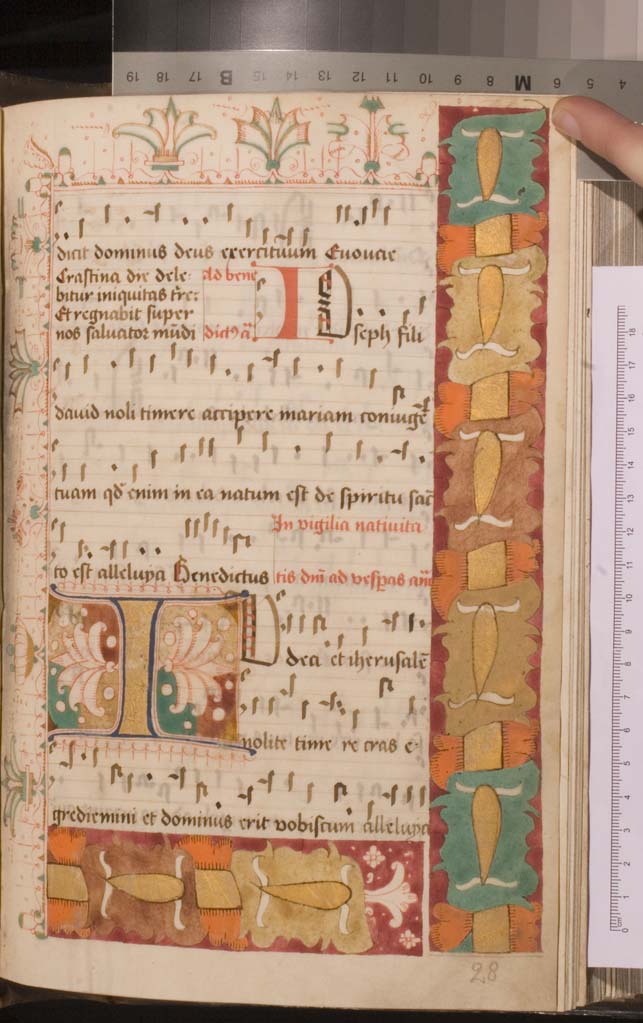 dicit dominus deus exercituum Euouae
Crastina die dele-
bitur iniquitas tr̄e:
Et regnabit super
nos saluator mūdi
Ad bene
dictꝰ añ
IO
seph fili
dauid noli timere accipere mariam coniugē
tuam qd̄ enim in ea natum est de spiritu sāc
to est alleluya Benedictus
In vigilia natiuita
tis dn̄i ad vesꝑas añ
IU
dea et iherusalē
nolite time re cras e-
grediemini et dominus erit vobiscum alleluya
28